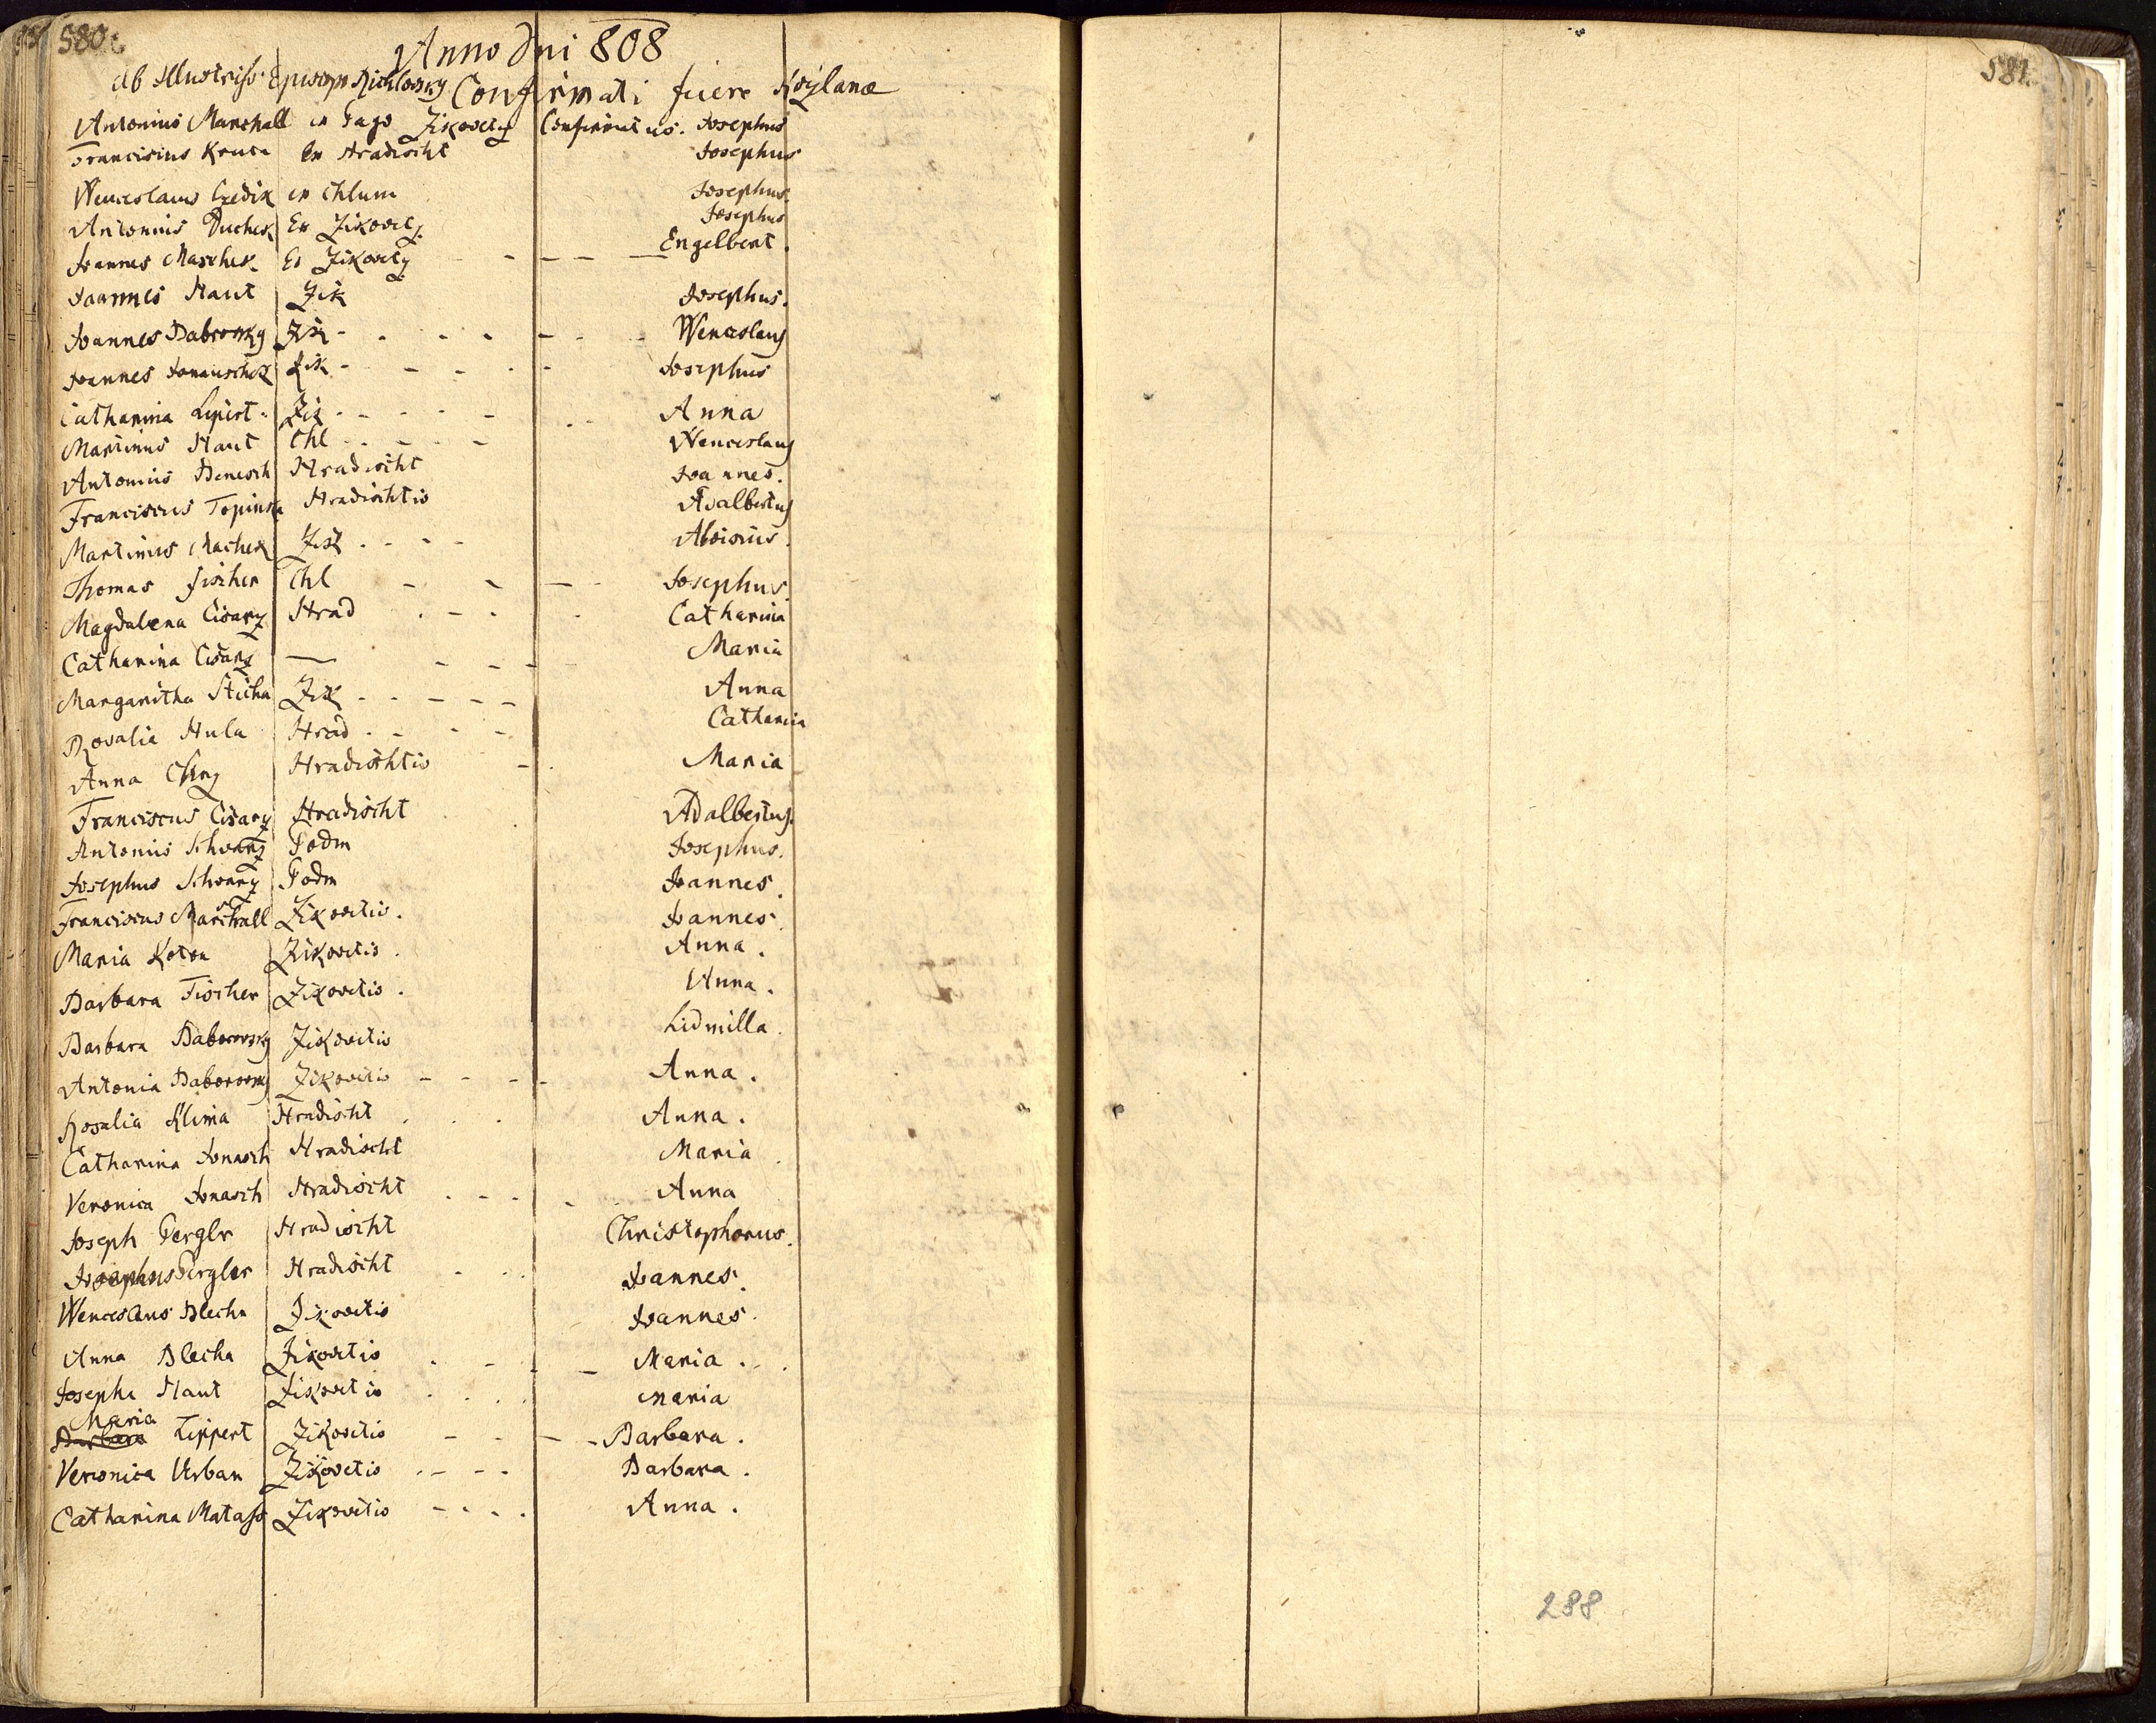 580.
Anno Dni 808
Ab Illustriss. Episcop Richlowsky Confirmati fuere
Antonius Marschall ex Pago Zikovety Confirmatus. Josephus
Franciscus Ex Hradischt Josephus
Wenceslaus ex Chlum Josephus.
Antonius Duchek Ex Zikovety. Josephus
Joannes Maschek Ex Zikovety - - - Engelbert.
Joannes Haut Zik Josephus.
Joannes Daborowsky Zik - - - Wenceslaus
Joannes Jonauschek Zik - - - Josephus
Catharina Lipert Zik - - - Anna
Martinus Haut Chl - - - Wenceslaus
Antonius Benesch Hradischt Joannes.
Franciscus Topinka Hradischtio Adalbertus
Martinus Machek Zik - - - Aloisius.
Thomas Fischer Chl - - - Josephus.
Magdalena Cisarz Hrad - - - Catharina
Catharina Cisarz — - - - Maria
Margaritha Sticha Zik - - - Anna
Rosalia Hula Hrad - - - Catharina
Anna Hradischtio - Maria
Franciscus Cisarz Hradischt Adalbertus.
Antonius Schvarz Podm Josephus.
Josephus Schvarz Podm Joannes.
Franciscus Marschall Zikovitio. Joannes.
Maria Kotou Zikovitio. Anna.
Barbara Fischer Zikovitio. Anna.
Barbara Daborowsky Zikovitio Lidmilla.
Antonia Daborowsky Zikovitio - - - Anna.
Rosalia Klima Hradischt Anna.
Catharina Jonasch Hradischt Maria
Veronica Jonasch Hradischt - - - Anna
Joseph Perglr Hradischt Christophorus.
Josephus Pergler Hradischt - Joannes.
Wenceslaus Blecha Zikovitio Joannes.
Anna Blecha Zikovitio - - - Maria.
Josepha Haut Zikovitio Maria
Maria
Barbara Lippert Zikovitio - - - Barbara.
Veronica Urban Zikovitio - - - Barbara.
Catharina Matass Zikovitio - - - Anna.
581.
288